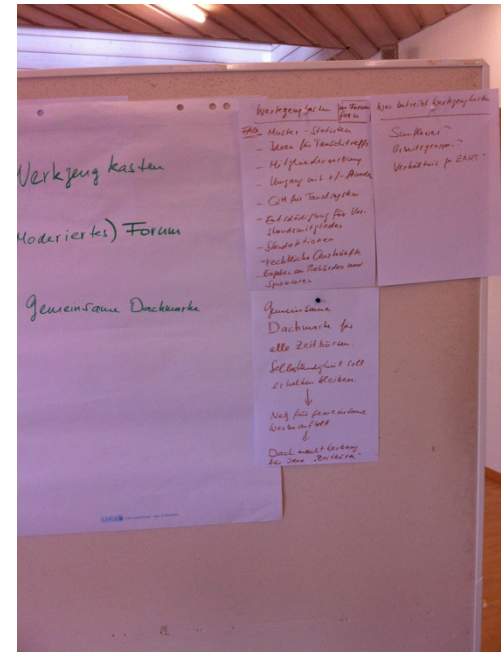 Werkzeug kasten
(Moderiertes) Forum
Gemeinsame Dachmarke
Werkzeug kasten im Forum
Form
FAQ
- Muster-Statuten
- Ideen für Tauschtreffs
- Mitgliederwerbung
- Umgang mit +/- Stunden
- QM für Tauschsystem
- Entschädigung für Vor-
standsmitglieder
- Standaktionen
- rechtliche Auskünfte
- Eingaben an Behörden und
Sponsoren
Wer betreibt Werkzeugkasten
SunFlower?
Arbeitsgruppe?
Verhältnis zu ZART?
Gemeinsame
Dachmarke für
alle Zeitbörsen.
Selbständigkeit soll
erhalten bleiben.
↓
Netz für gemeinsame
Werbeauftritt
↓
Dach macht Werbung
für Idee "Zeitbörse"